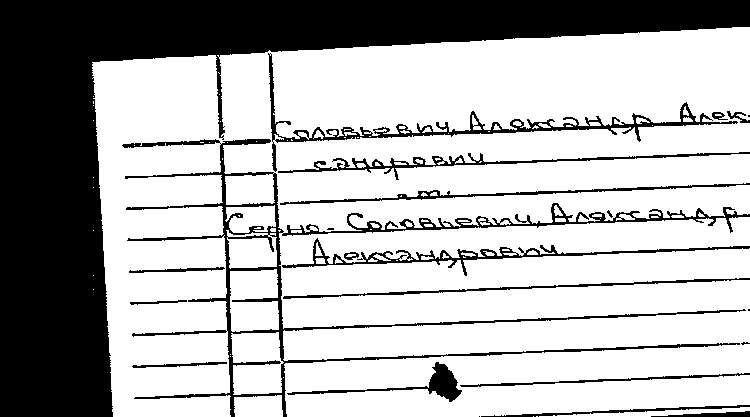 Соловьевич, Александр Алек-
сандрович
см.
Серно-Соловьевич, Александр
Александрович